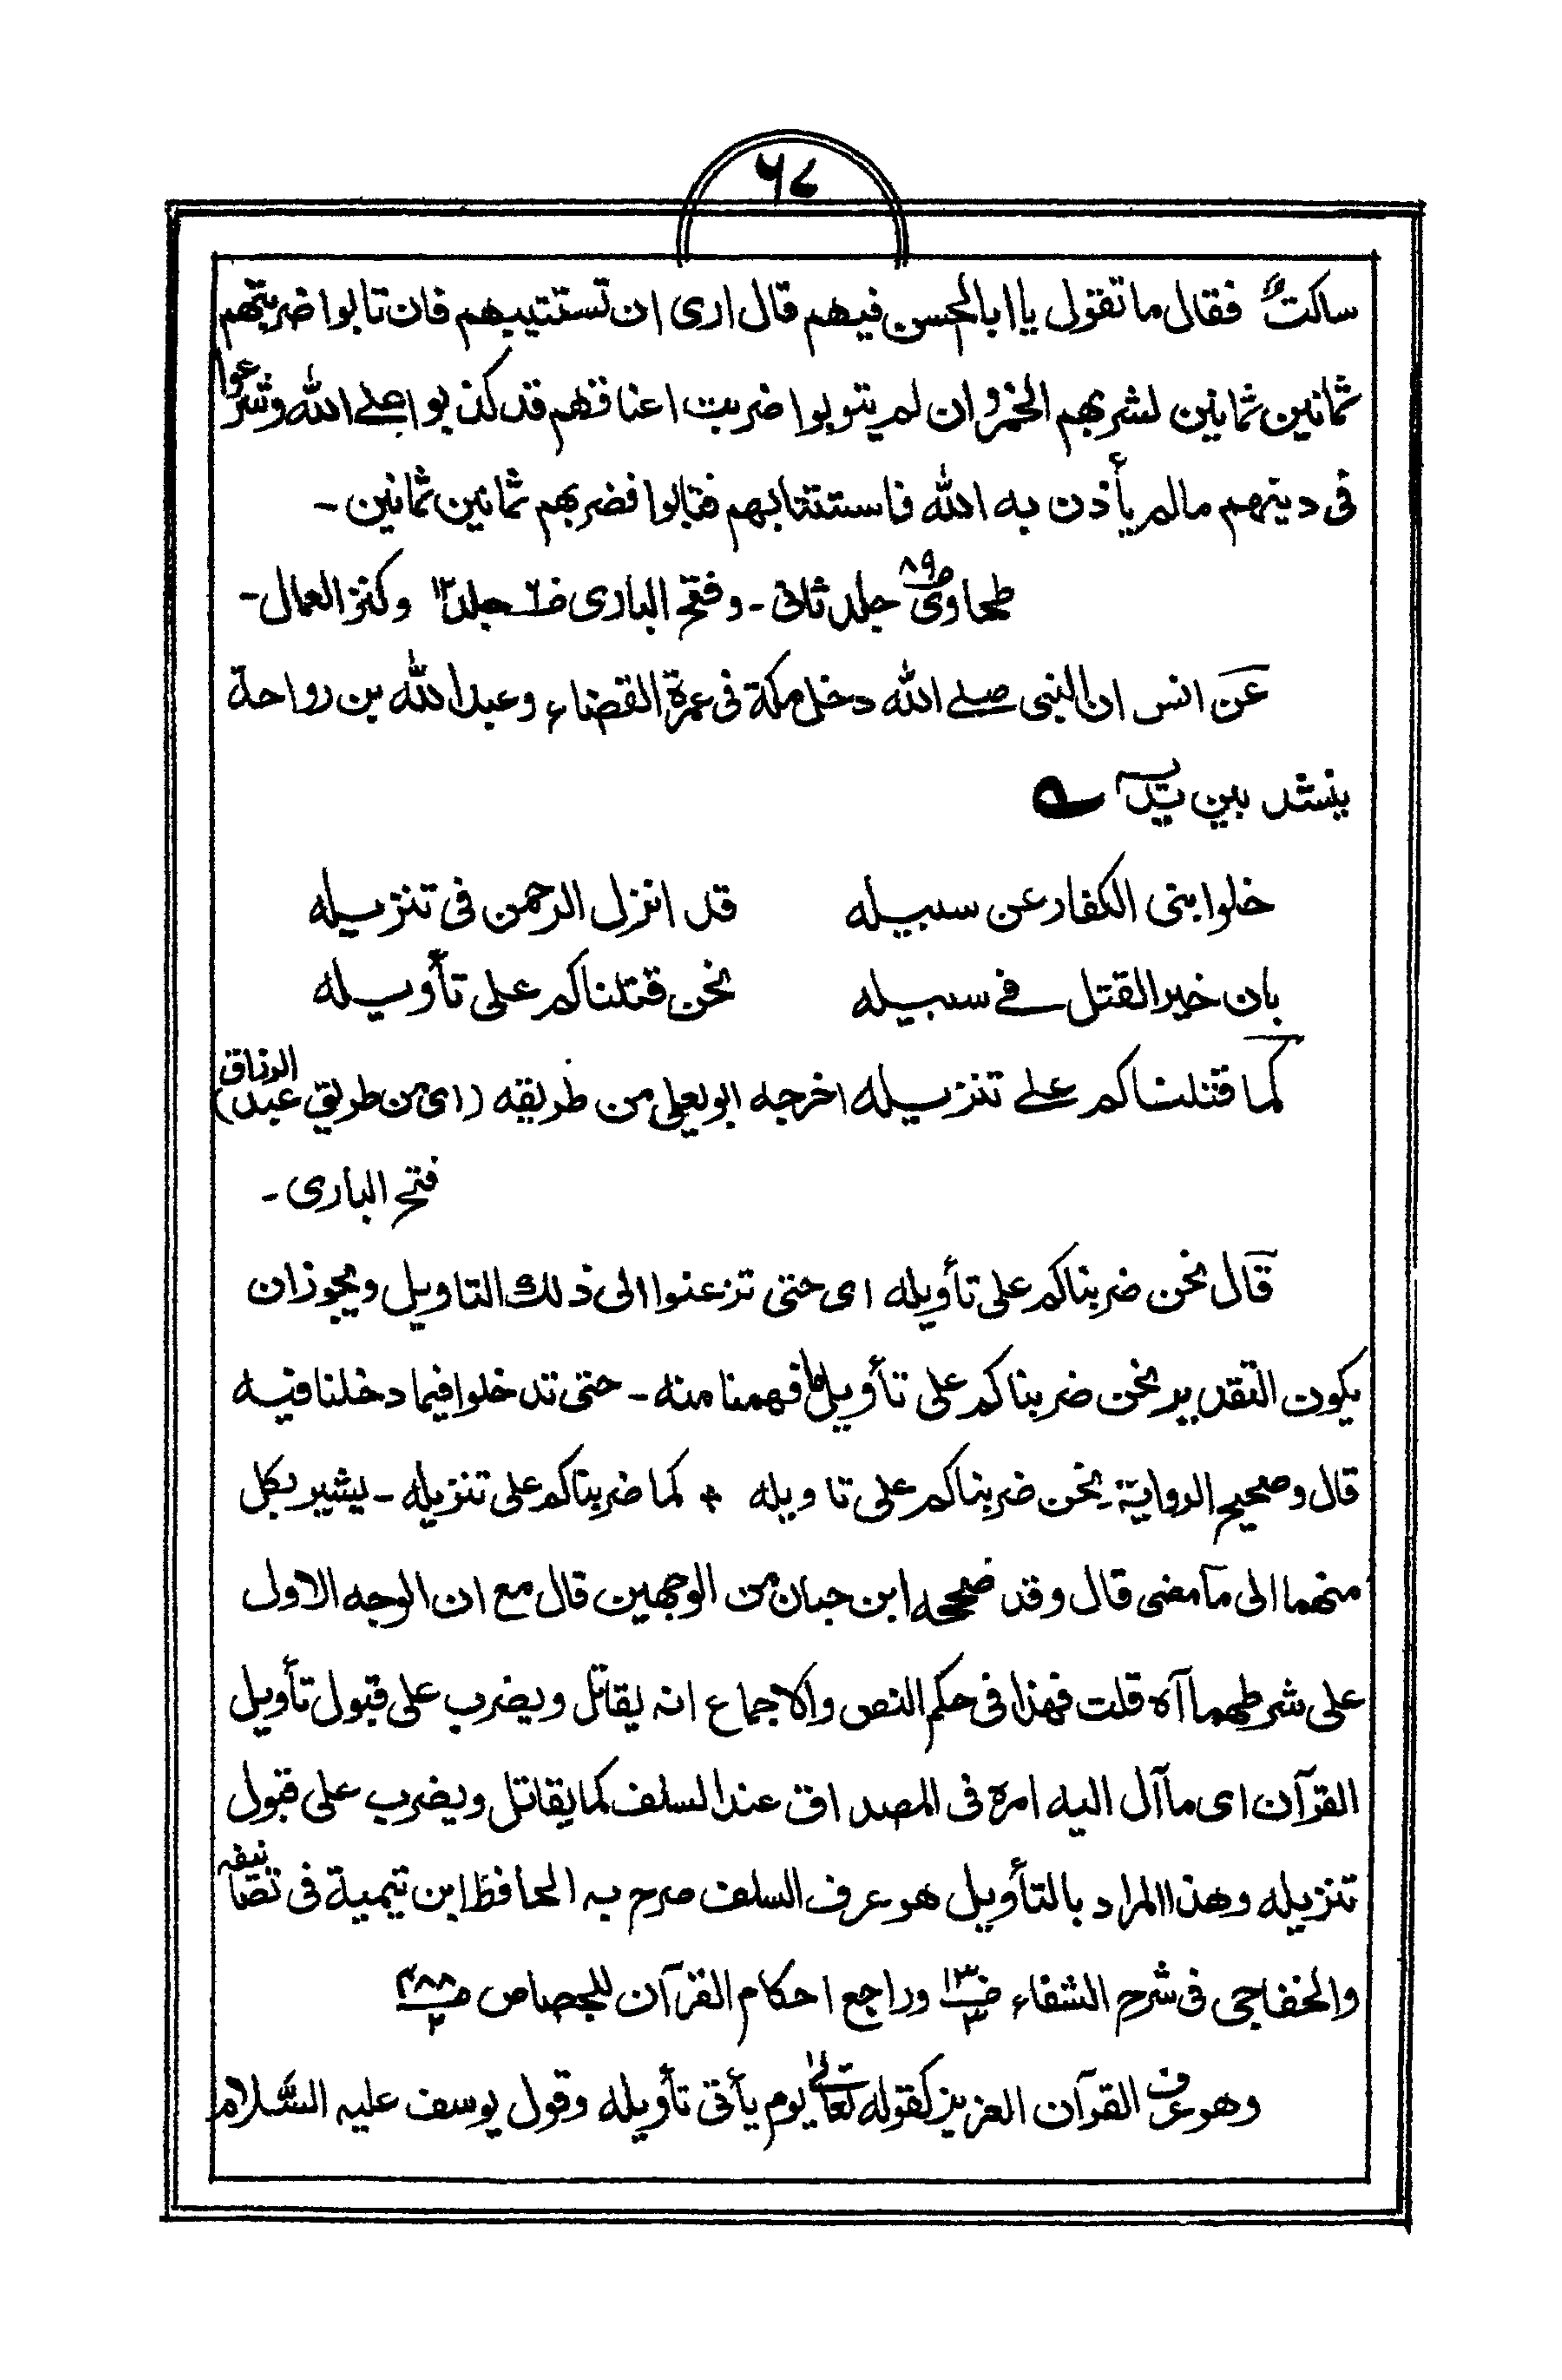 ٦٧
ساكت فقال ما تقول يا ابا الحسن فيهم قال ارى ان تستتيبهم فان تابوا ضربتهم
ثمانين ثمانين لشربهم الخمر وان لم يتوبوا ضربت اعناقهم قد كذبوا على الله وشرعوا
فى دينهم مالم يأذن به الله فاستتابهم فتابوا فضربهم ثمانين ثمانين -
طحاوى ص٨٩ جلد ثانى - وفتح البارى جلد ١٢ وكنز العمال -
عن انس ان النبى صلے الله دخل مكة فى عمرة القضاء وعبد الله بن رواحة
ينشد بين يديه ؎
خلوا بنى الكفار عن سبيله قد انزل الرحمن فى تنزيله
بان خير القتل فے سبيله نحن قتلناكم على تأويله
كما قتلناكم علے تنزيله اخرجه ابو يعلى من طريقه (اى من طريق عبد الرزاق)
فتح البارى -
قال نحن ضربناكم على تأويله اى حتى تزعنوا الى ذلك التاويل ويجوز ان
يكون التقدير نحن ضربناكم على تأويل ما فهمنا منه - حتى تدخلوا فيما دخلنا فيه
قال وصحيح الرواية نحن ضربناكم على تاويله * كما ضربناكم على تنزيله - يشير بكل
منهما الى مآ مضى قال وقد صححه ابن حبان من الوجهين قال مع ان الوجه الاول
على شرطهما آه قلت فهذا فى حكم النص والاجماع انه يقاتل ويضرب على قبول تأويل
القرآن اى مآ آل اليه امره فى المصداق عند السلف كما يقاتل ويضرب على قبول
تنزيله وهذا المراد بالتأويل هو عرف السلف صرح به الحافظ ابن تيمية فى تصانيفه
والخفاجى فى شرح الشفاء ص١٣ ٣ وراجع احكام القرآن للجصاص ص٢٨٨ ٢
وهو عرف القرآن العزيز كقوله تعالى يوم يأتى تأويله وقول يوسف عليه السلام